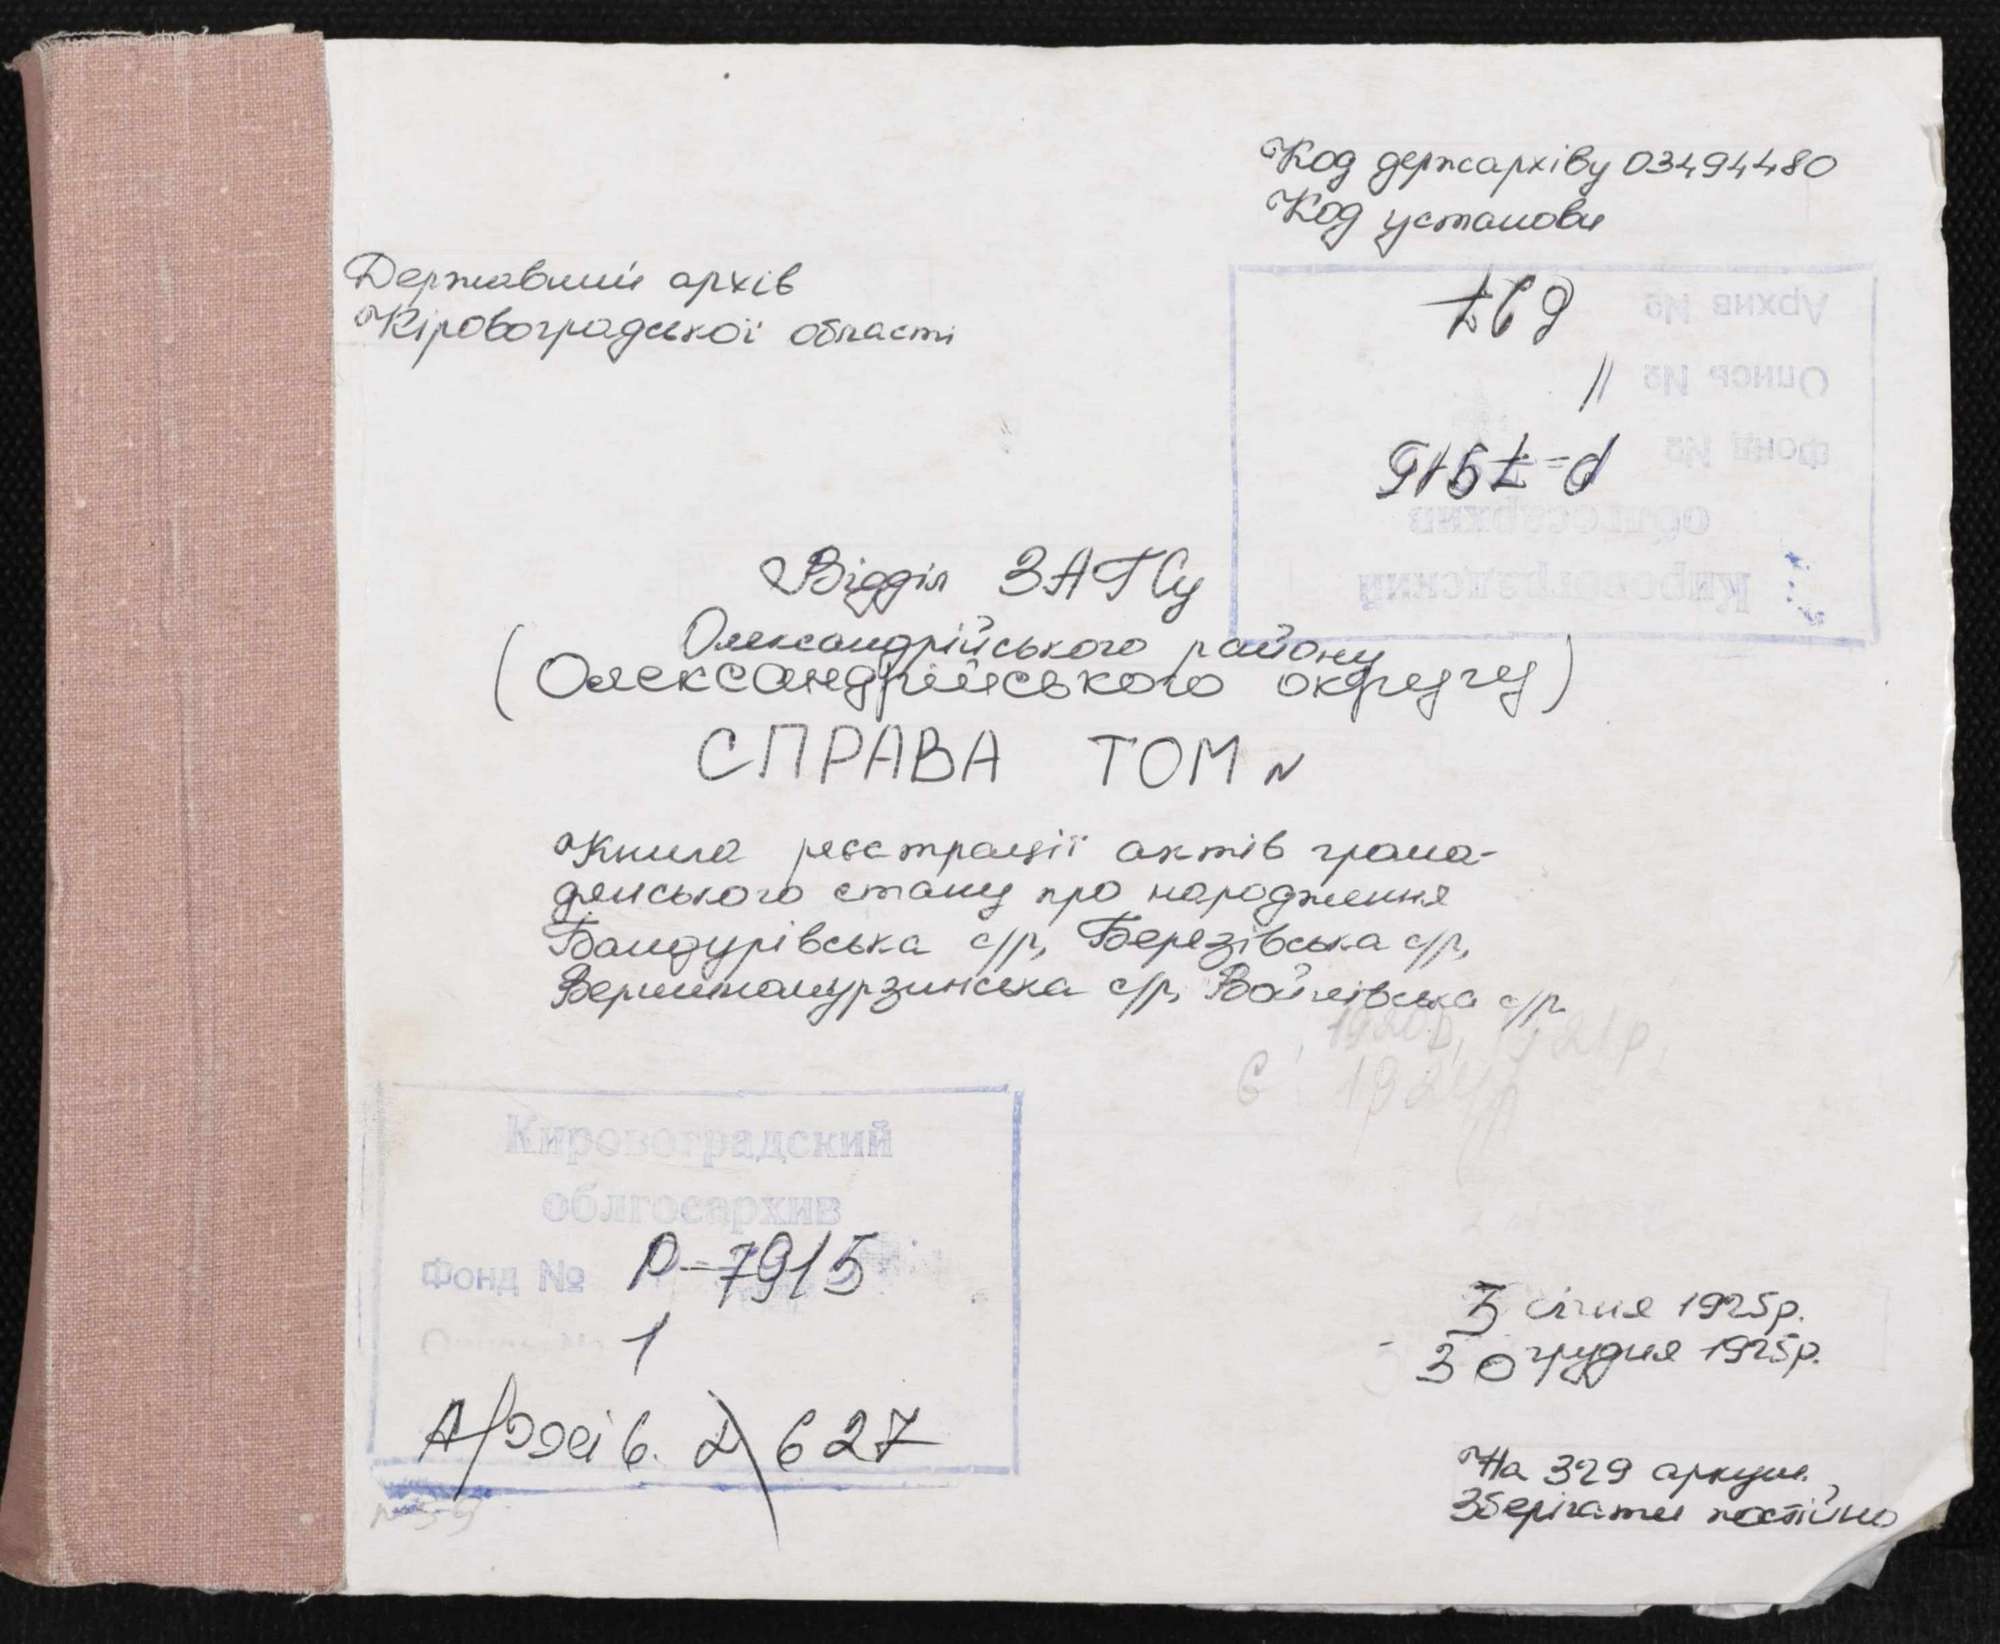 Код держархіву 03494480
Код установи
Державний архів
Кіровоградської області
Архив №
697
Опись №
11
Фонд №
Р-7915
облгосархив
Кировоградский
Відділ ЗАГСу
Олександрійського району
(Олександрійського округу)
СПРАВА ТОМ N
Книга реєстрації актів грома-
дянського стану про народження
Бандурівська с/р, Березівська с/р,
Вершинамурзинська с/р, Войнівська с/р
1921р,
1924р
Кировоградский
облгосархив
Фонд № Р-7915
1
627
3 січня 1925р.
30 грудня 1925р.
На 329 аркуш.
Зберігати постійно